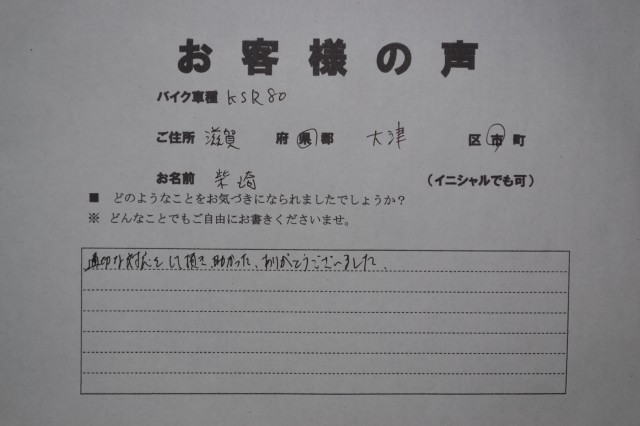 お客様の声
バイク車種 KSR80
ご住所 滋賀 府県都 大津 区市町
お名前 柴崎 (イニシャルでも可)
■ どのようなことをお気づきになられましたでしょうか?
※ どんなことでもご自由にお書きくださいませ。
適切な対応をして頂き、助かった、ありがとうございました。